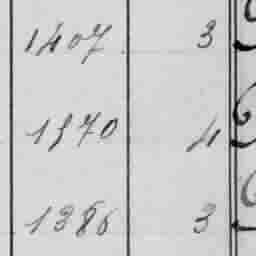 1407 3
1370 4
1386 3